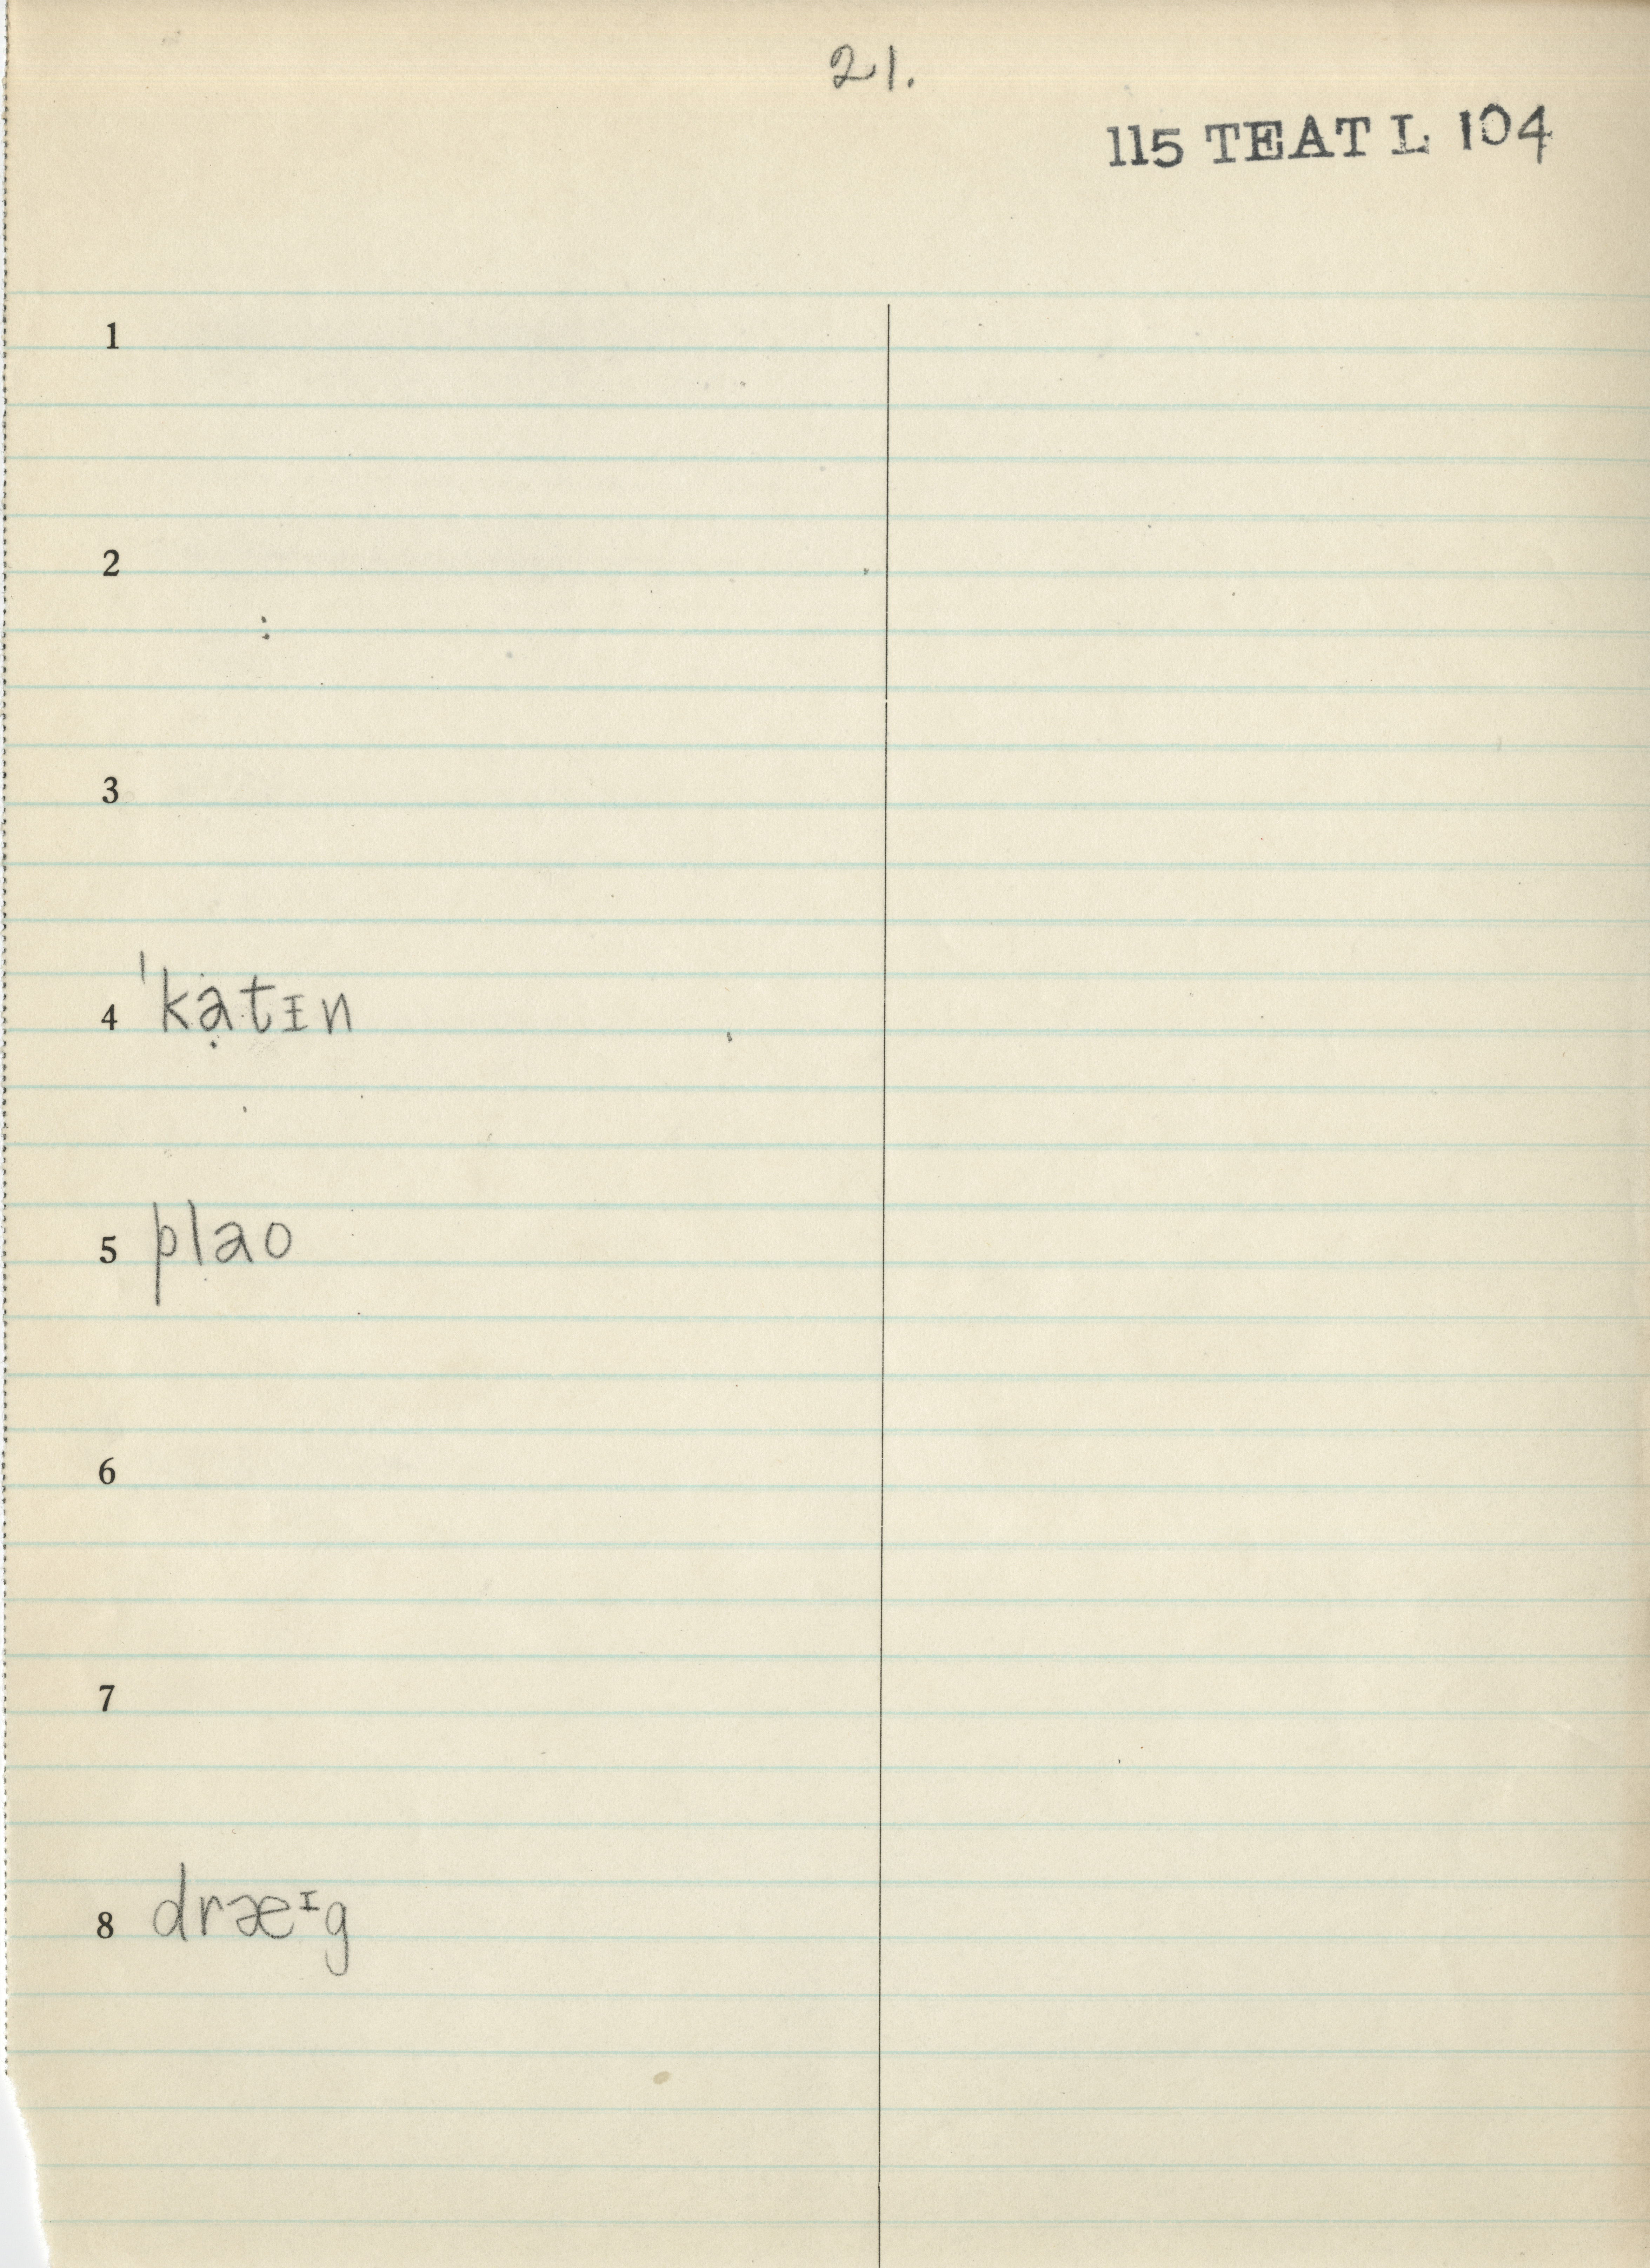 21.
115 TEAT L 104
1
2
3
4 ˈkạtɪn
5 plao
6
7
8 dræᶦg